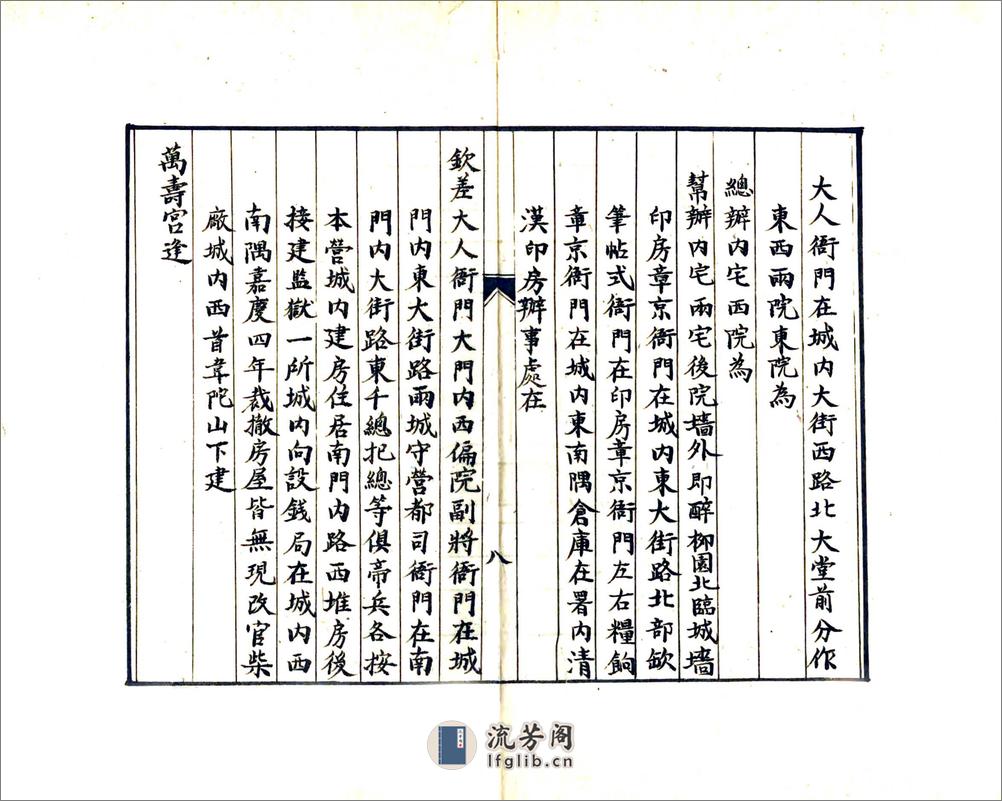 大人衙門在城内大街西路北大堂前分作
東西兩院東院為
總辦内宅西院為
幫辦内宅兩宅後院墻外即醉柳園北臨城墻
印房章京衙門在城内東大街路北部缺
筆帖式衙門在印房章京衙門左右糧餉
章京衙門在城内東南隅倉庫在署内清
漢印房辦事處在
八
欽差大人衙門大門内西偏院副將衙門在城
門内東大街路兩城守營都司衙門在南
門内大街路東千總把總等俱帶兵各按
本營城内建房住居南門内路西堆房後
接建監獄一所城内向設錢局在城内西
南隅嘉慶四年裁撤房屋皆無現改官柴
廠城内西首韋陀山下建
萬壽宫逢
流芳阁
lfglib.cn